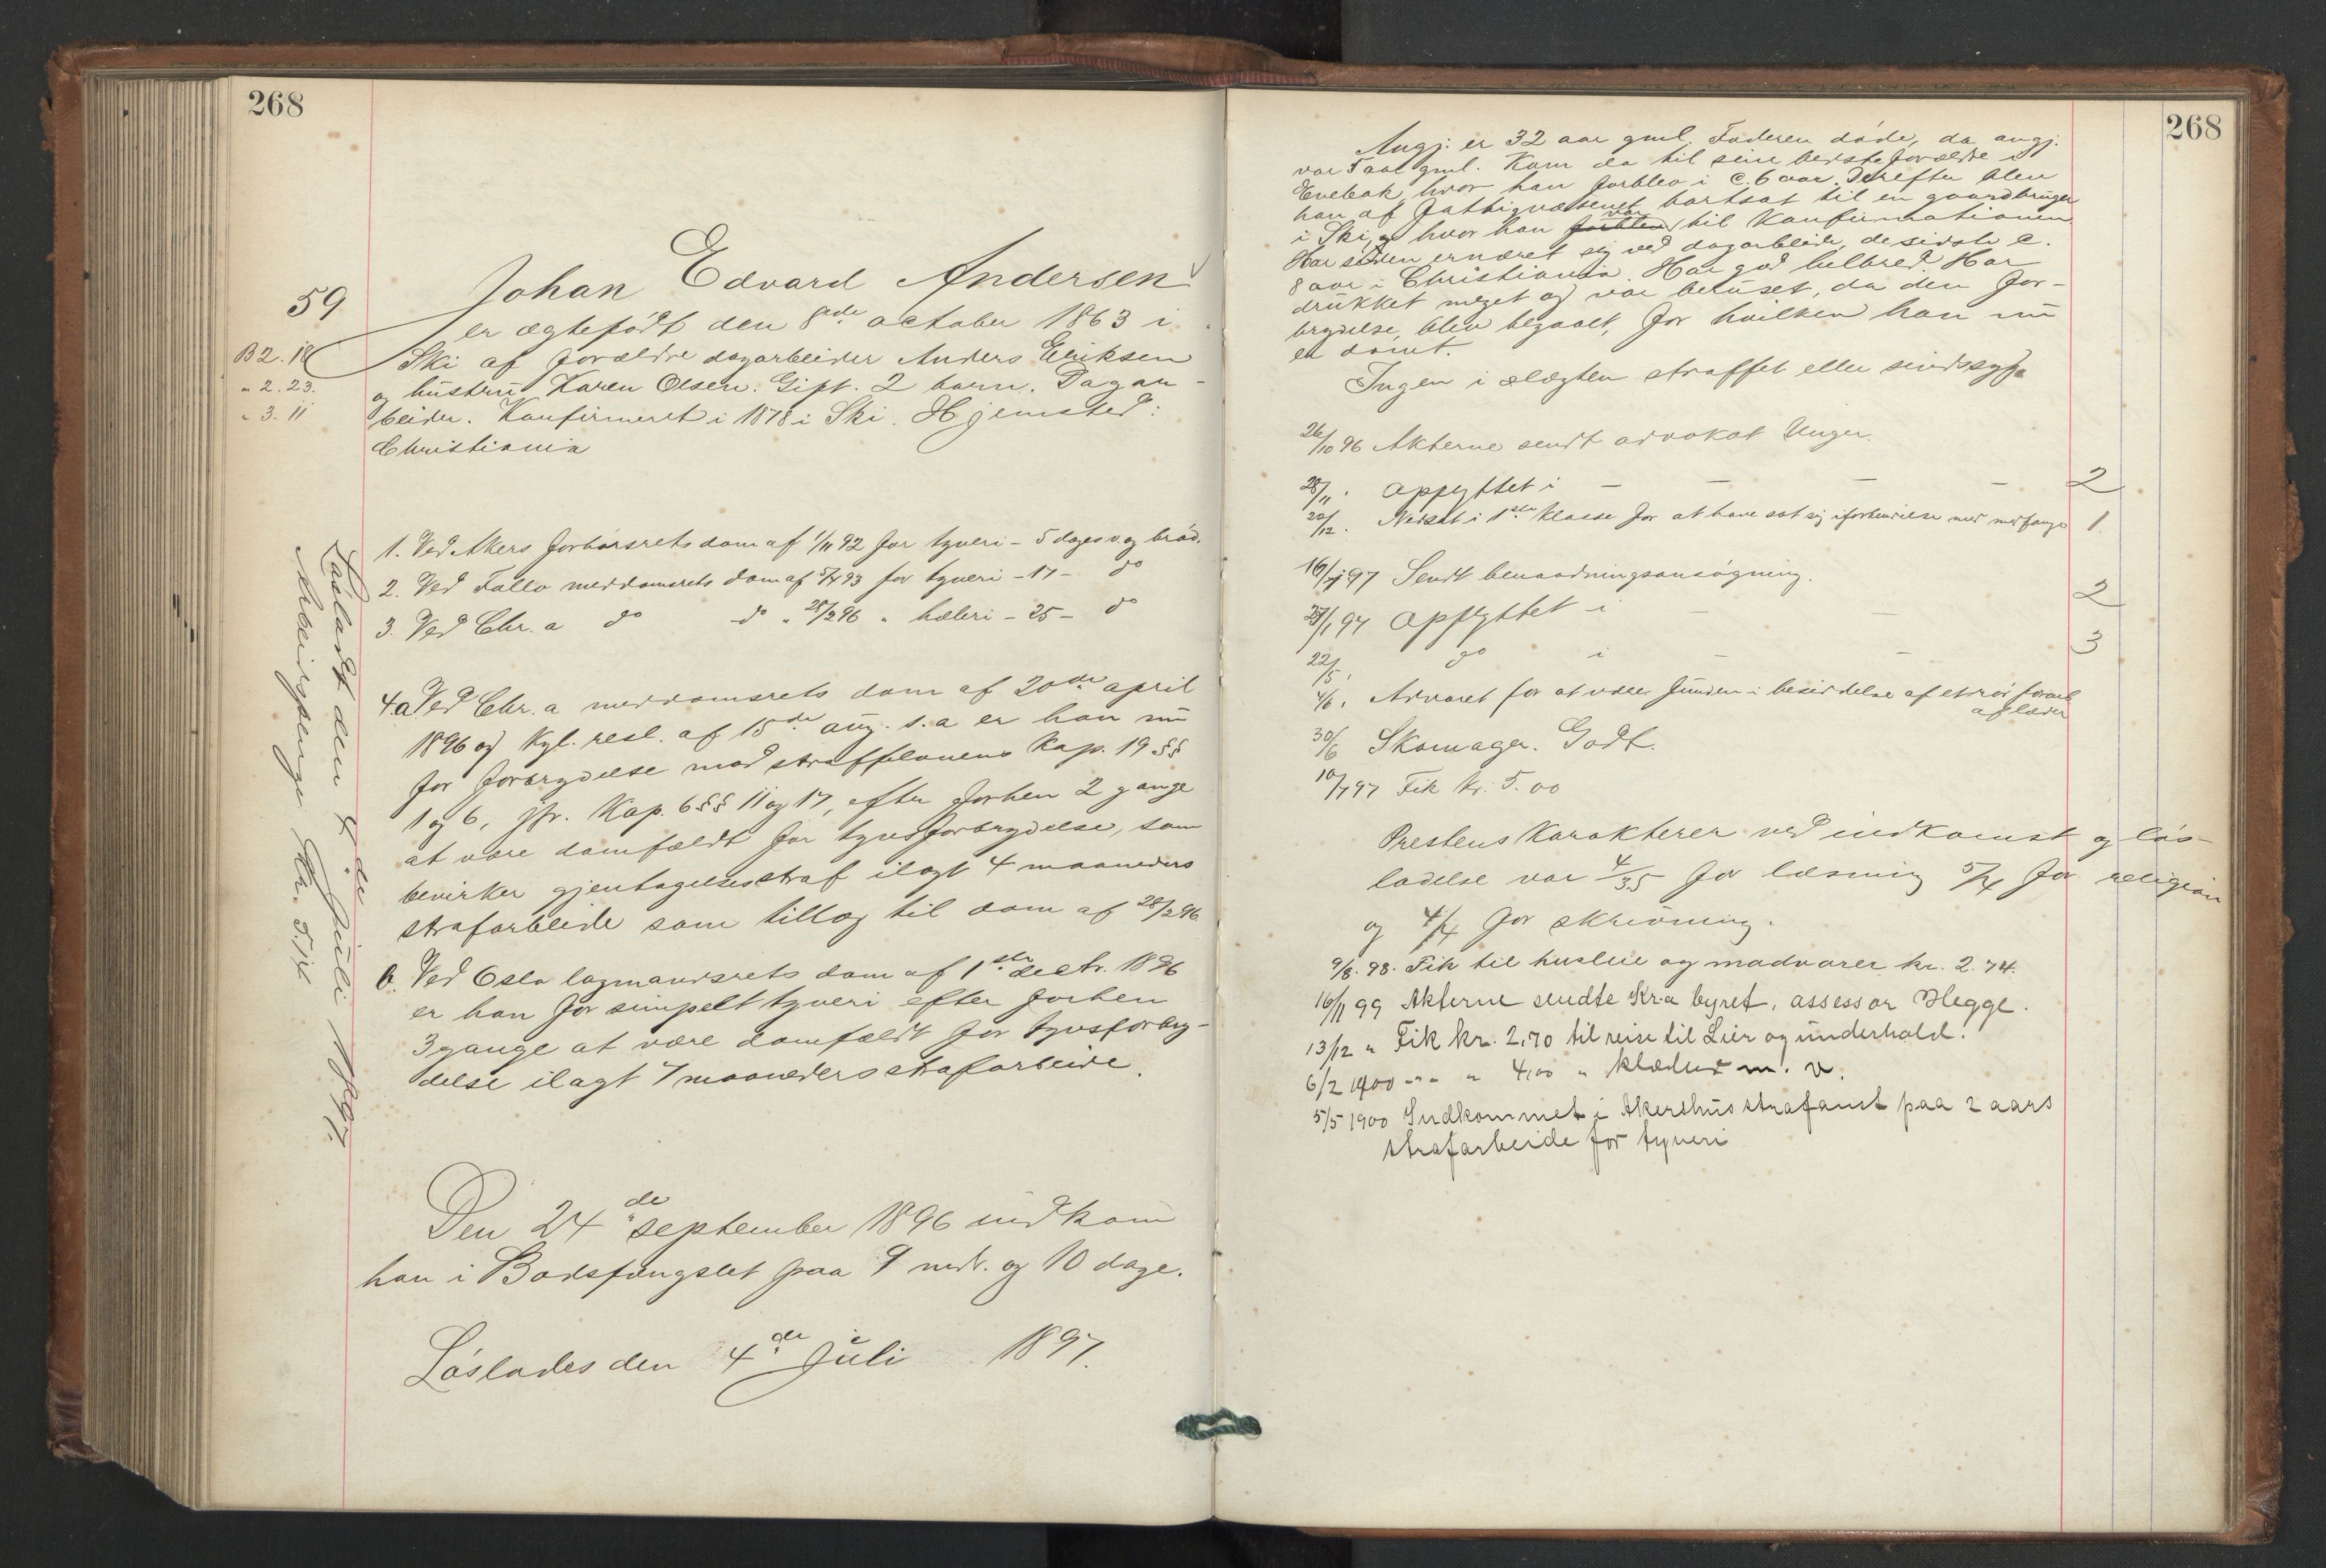 268
59
Johan Edvard Andersen
er ægtefödt den 8de october 1863 i
B 2. 18
Ski af forældre dagarbeider Anders Eriksen
" 2. 23.
og hustru Karen Olsen. Gift. 2 barn. Dagar-
" 3. 11
beider. Konfirmeret i 1878 i Ski. Hjemsted:
Christiania
1. Ved Akers forhörsrets dom af 1/11 92 for tyveri - 5 dages v og bröd.
2. Ved Follo meddomsrets dom af 5/4 93 for tyveri - 17 - do
3. Ved Chr.a do do " 28/2 96 " hæleri - 25 - do
4.a Ved Chr.a meddomsrets dom af 20de april
1896 og Kgl. resl. af 15de aug. s.a er han nu
for forbrydelse mod straffelovens Kap. 19 §§
1 og 6, jfr. Kap. 6 §§ 11 og 17, efter forhen 2 gange
at være domfældt for tyvsforbrydelse, som
bevirker gjentagelsesstraf ilagt 4 maaneders
strafarbeide som tillæg til dom af 28/2 96
b. Ved Oslo lagmandsrets dom af 1ste decbr. 1896
er han for simpelt tyveri efter forhen
3 gange at være domfældt for tyvsforbry-
delse ilagt 7 maaneders strafarbeide.
Löslad t den 4de Juli 1897.
Arbeidspenge Kr. 5.
Den 24de september 1896 indkom
han i Bodsfængslet paa 9 mdr. og 10 dage.
Löslades den 4de Juli 1897.
268
Angj. er 32 aar gml. Faderen döde, da angj.
var 5 aar gml. Kom da til sine bedsteforældre i
Enebak, hvor han forblev i c. 6 aar. Derefter blev
han af fattigvæsenet bortsat til en gaardbruger
i Ski, og hvor han forblev var til Konfirmationen
Har siden ernæret sig ved dagarbeide, de sidste c.
8 aar i Christiania. Har god helbred. Har
drukket meget og var beruset, da den for-
brydelse blev begaaet, for hvilken han nu
er dömt.
Ingen i slægten straffet eller sindssyg.
26/10 96 Akterne sendt advokat Unger.
28/11 " Opflyttet i - - - - 2
20/12 " Nedsat i 1ste Klasse for at have sat sig i forbindelse med medfange 1
16/1 97 Sendt benaadningsansögning.
28/1 97 Opflyttet i - - 2
22/5 " do i - - 3
4/6 " Advaret for at være funden i besiddelse af et rör forarb.
af læder
30/6 Skomager. Godt.
10/7 97 Fik Kr. 5.00
Prestens Karakterer ved indkomst og lös-
ladelse var 4/3.5 for læsning 5/4 for religion
og 4/4 for skrivning.
9/8. 98. Fik til husleie og madvarer kr. 2.74.
16/11 99 Akterne sendte Kr.a byret, assessor Hegge.
13/12 " Fik kr. 2,70 til reise til Lier og underhold.
6/2 1900 - " - " 4,00 " klæder m. v.
5/5 1900 Indkommet i Akershus strafanst paa 2 aars
strafarbeide for tyveri